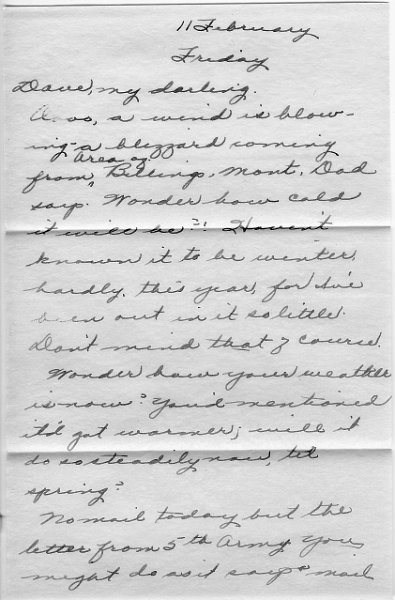 11 February
Friday
Dave, my darling.
A. oo, a wind is blow-
ing - a blizzard coming
from area of Billings, Mont. Dad
says. Wonder how cold
it will be?! Haven't
known it to be winter,
hardly, this year, for I've
been out in it so little.
Don't mind that of course.
Wonder how your weather
is now? You'd mentioned
it'd got warmer; will it
do so steadily now, til
spring?
No mail today but the
letter from 5th Army. You
might do as it says & mail